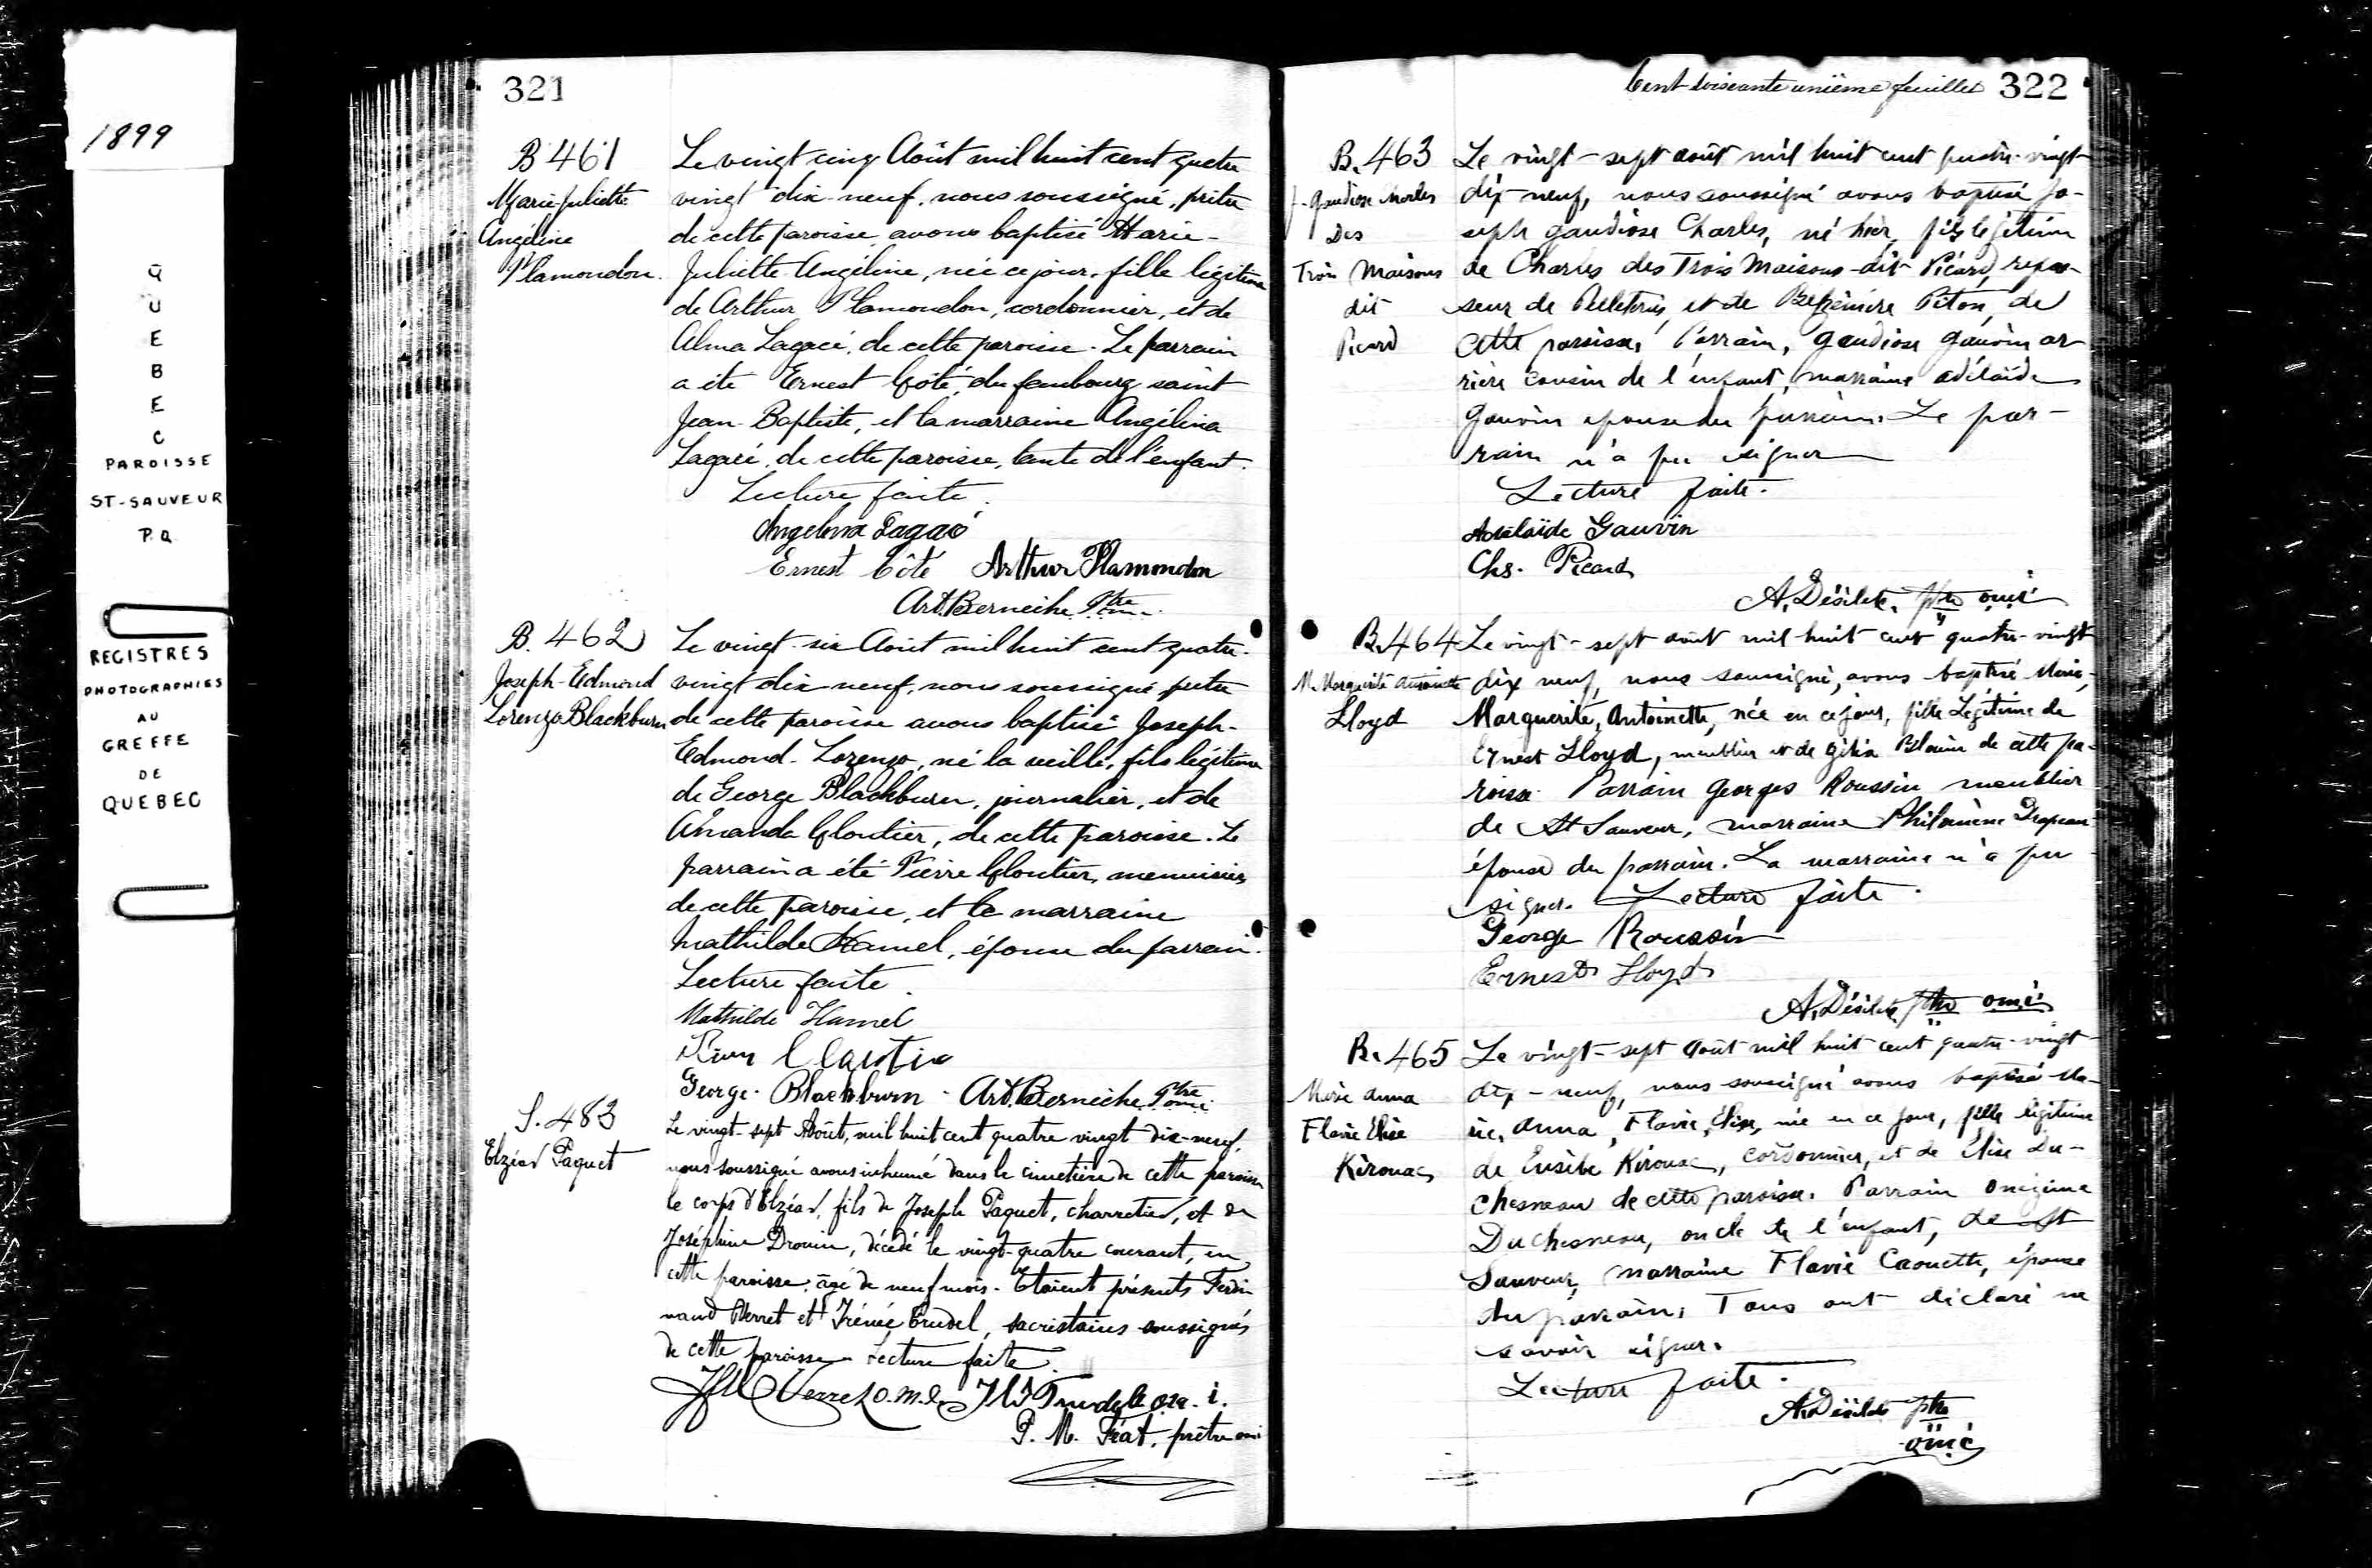 1899
QUEBEC
PAROISSE
ST-SAUVEUR
P.Q
REGISTRES
PHOTOGRAPHIES
AU
GREFFE
DE
QUEBEC
321
B 461
Marie Juliette
Angéline
Plamondon.
Le vingt cinq Août mil huit cent quatre
vingt dix-neuf, nous soussigné, prêtre
de cette paroisse, avons baptisé Marie-
Juliette Angéline, née ce jour, fille légitime
de Arthur Plamondon, cordonnier, et de
Alma Lagacé, de cette paroisse. Le parrain
a été Ernest Côté, du faubourg saint
Jean-Baptiste, et la marraine Angélina
Lagacé, de cette paroisse, tante de l'enfant.
Lecture faite.
Angelina Lagacé
Ernest Côté Arthur Plamondon
Art. Berneche Ptre omi
B. 462
Joseph-Edmond
Lorenzo Blackburn
Le vingt-six Août mil huit cent quatre-
vingt dix-neuf, nous soussigné prêtre
de cette paroisse avons baptisé Joseph-
Edmond-Lorenzo, né la veille, fils légitime
de George Blackburn, journalier, et de
Amanda Cloutier, de cette paroisse. Le
parrain a été Pierre Cloutier, menuisier,
de cette paroisse, et la marraine
Mathilde Hamel, épouse du parrain.
Lecture faite.
Mathilde Hamel
George Blackburn - Art. Berneche Ptre omi
S. 483
Elzéar Paquet
Le vingt-sept Août, mil huit cent quatre vingt dix-neuf,
nous soussigné avons inhumé dans le cimetière de cette paroisse
le corps d'Elzéar, fils de Joseph Paquet, charretier, et de
Joséphine Drouin, décédé le vingt-quatre courant, en
cette paroisse, âgé de neuf mois. Etaient présents Ferdi-
nand Verret et Irénée Trudel, sacristains soussignés
de cette paroisse. Lecture faite.
Verret o.m.i. Trudel o.m.i.
P. M. Féat, prêtre omi
Cent soixante unième feuillet 322
B. 463
J. Gaudiose Charles
Des
Trois Maisons
dit
Picard
Le vingt-sept août mil huit cent quatre-vingt
dix neuf, nous soussigné avons baptisé Jo-
seph Gaudiose Charles, né hier, fils légitime
de Charles des Trois Maisons-dit Picard, repas-
seur de Pelleteries, et de Piton, de
cette paroisse, Parrain, Gaudiose Gauvin ar-
rière cousin de l'enfant, marraine Adélaïde
Gauvin epouse du parrain. Le par-
rain n'a pu signer
Lecture faite.
Adélaïde Gauvin
Chs. Picard
A. Désilets, ptre omi
B. 464
M. Marguerite Antoinette
Lloyd
Le vingt-sept août mil huit cent quatre-vingt
dix neuf, nous soussigné, avons baptisé Marie,
Marguerite, Antoinette, née en ce jour, fille Légitime de
Ernest Lloyd, meublier et de Blouin de cette pa-
roisse. Parrain Georges Roussin meublier
de St Sauveur, marraine Philomène Drapeau
épouse du parrain. La marraine n'a pu
signer. Lecture faite.
George Roussin
Ernest Lloyd
A. Désilets, ptre omi
B. 465
Marie Anna
Flavie Elise
Kirouac
Le vingt-sept Août mil huit cent quatre-vingt-
dix-neuf, nous soussigné avons baptisé Ma-
rie, Anna, Flavie, Elise, née en ce jour, fille légitime
de Eusèbe Kirouac, cordonnier, et de Elise Du-
chesneau de cette paroisse. Parrain Onézime
Duchesneau, oncle de l'enfant, de St
Sauveur, marraine Flavie Caouette, épouse
du parrain. Tous ont déclaré ne
savoir signer.
Lecture faite.
A. Désilets ptre
omi